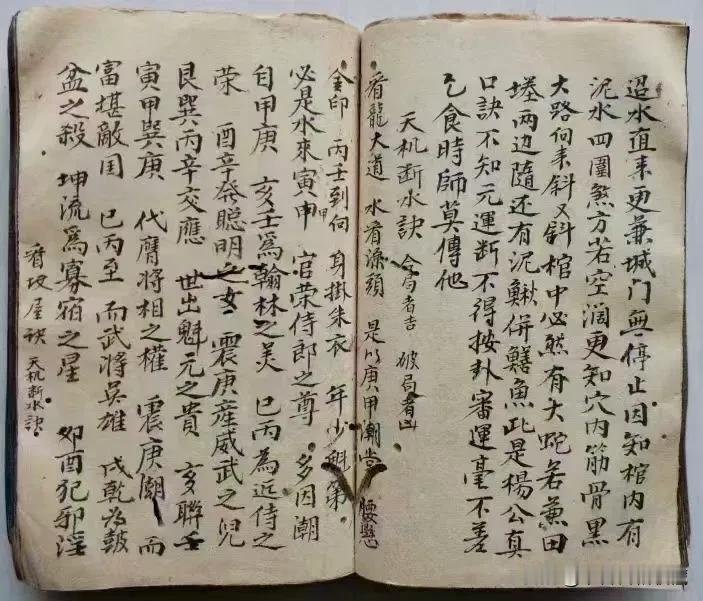 迢水直来更兼城门無停止因知棺内有
泥水四圍煞方若空濶更知穴内筋骨黑
大路何来斜又斜棺中必然有大蛇若兼田
塍两边隨还有泥鰍併鱔魚此是楊公真
口訣不知元運断不得按卦審運毫不差
乞食時師莫傳他
天机断水訣 合局者吉 破局者凶
看龍大道 水看源頭 是以庚甲潮堂 腰懸
金印 丙壬到向 身掛朱衣 年少魁第
必是水來寅申甲 官荣侍郎之尊 多因潮
自甲庚 亥壬爲翰林之美 巳丙為近侍之
荣 酉辛發聪明之女 震庚産威武之兒
艮巽丙辛交應 世出魁元之貴 亥聯壬
寅甲巽庚 代膺將相之權 震庚潮 而
富堪敵国 巳丙至 而武將英雄 戌乾為鼓
盆之殺 坤流爲寡宿之星 卯酉犯邪淫
看坟屋訣 天机断水訣